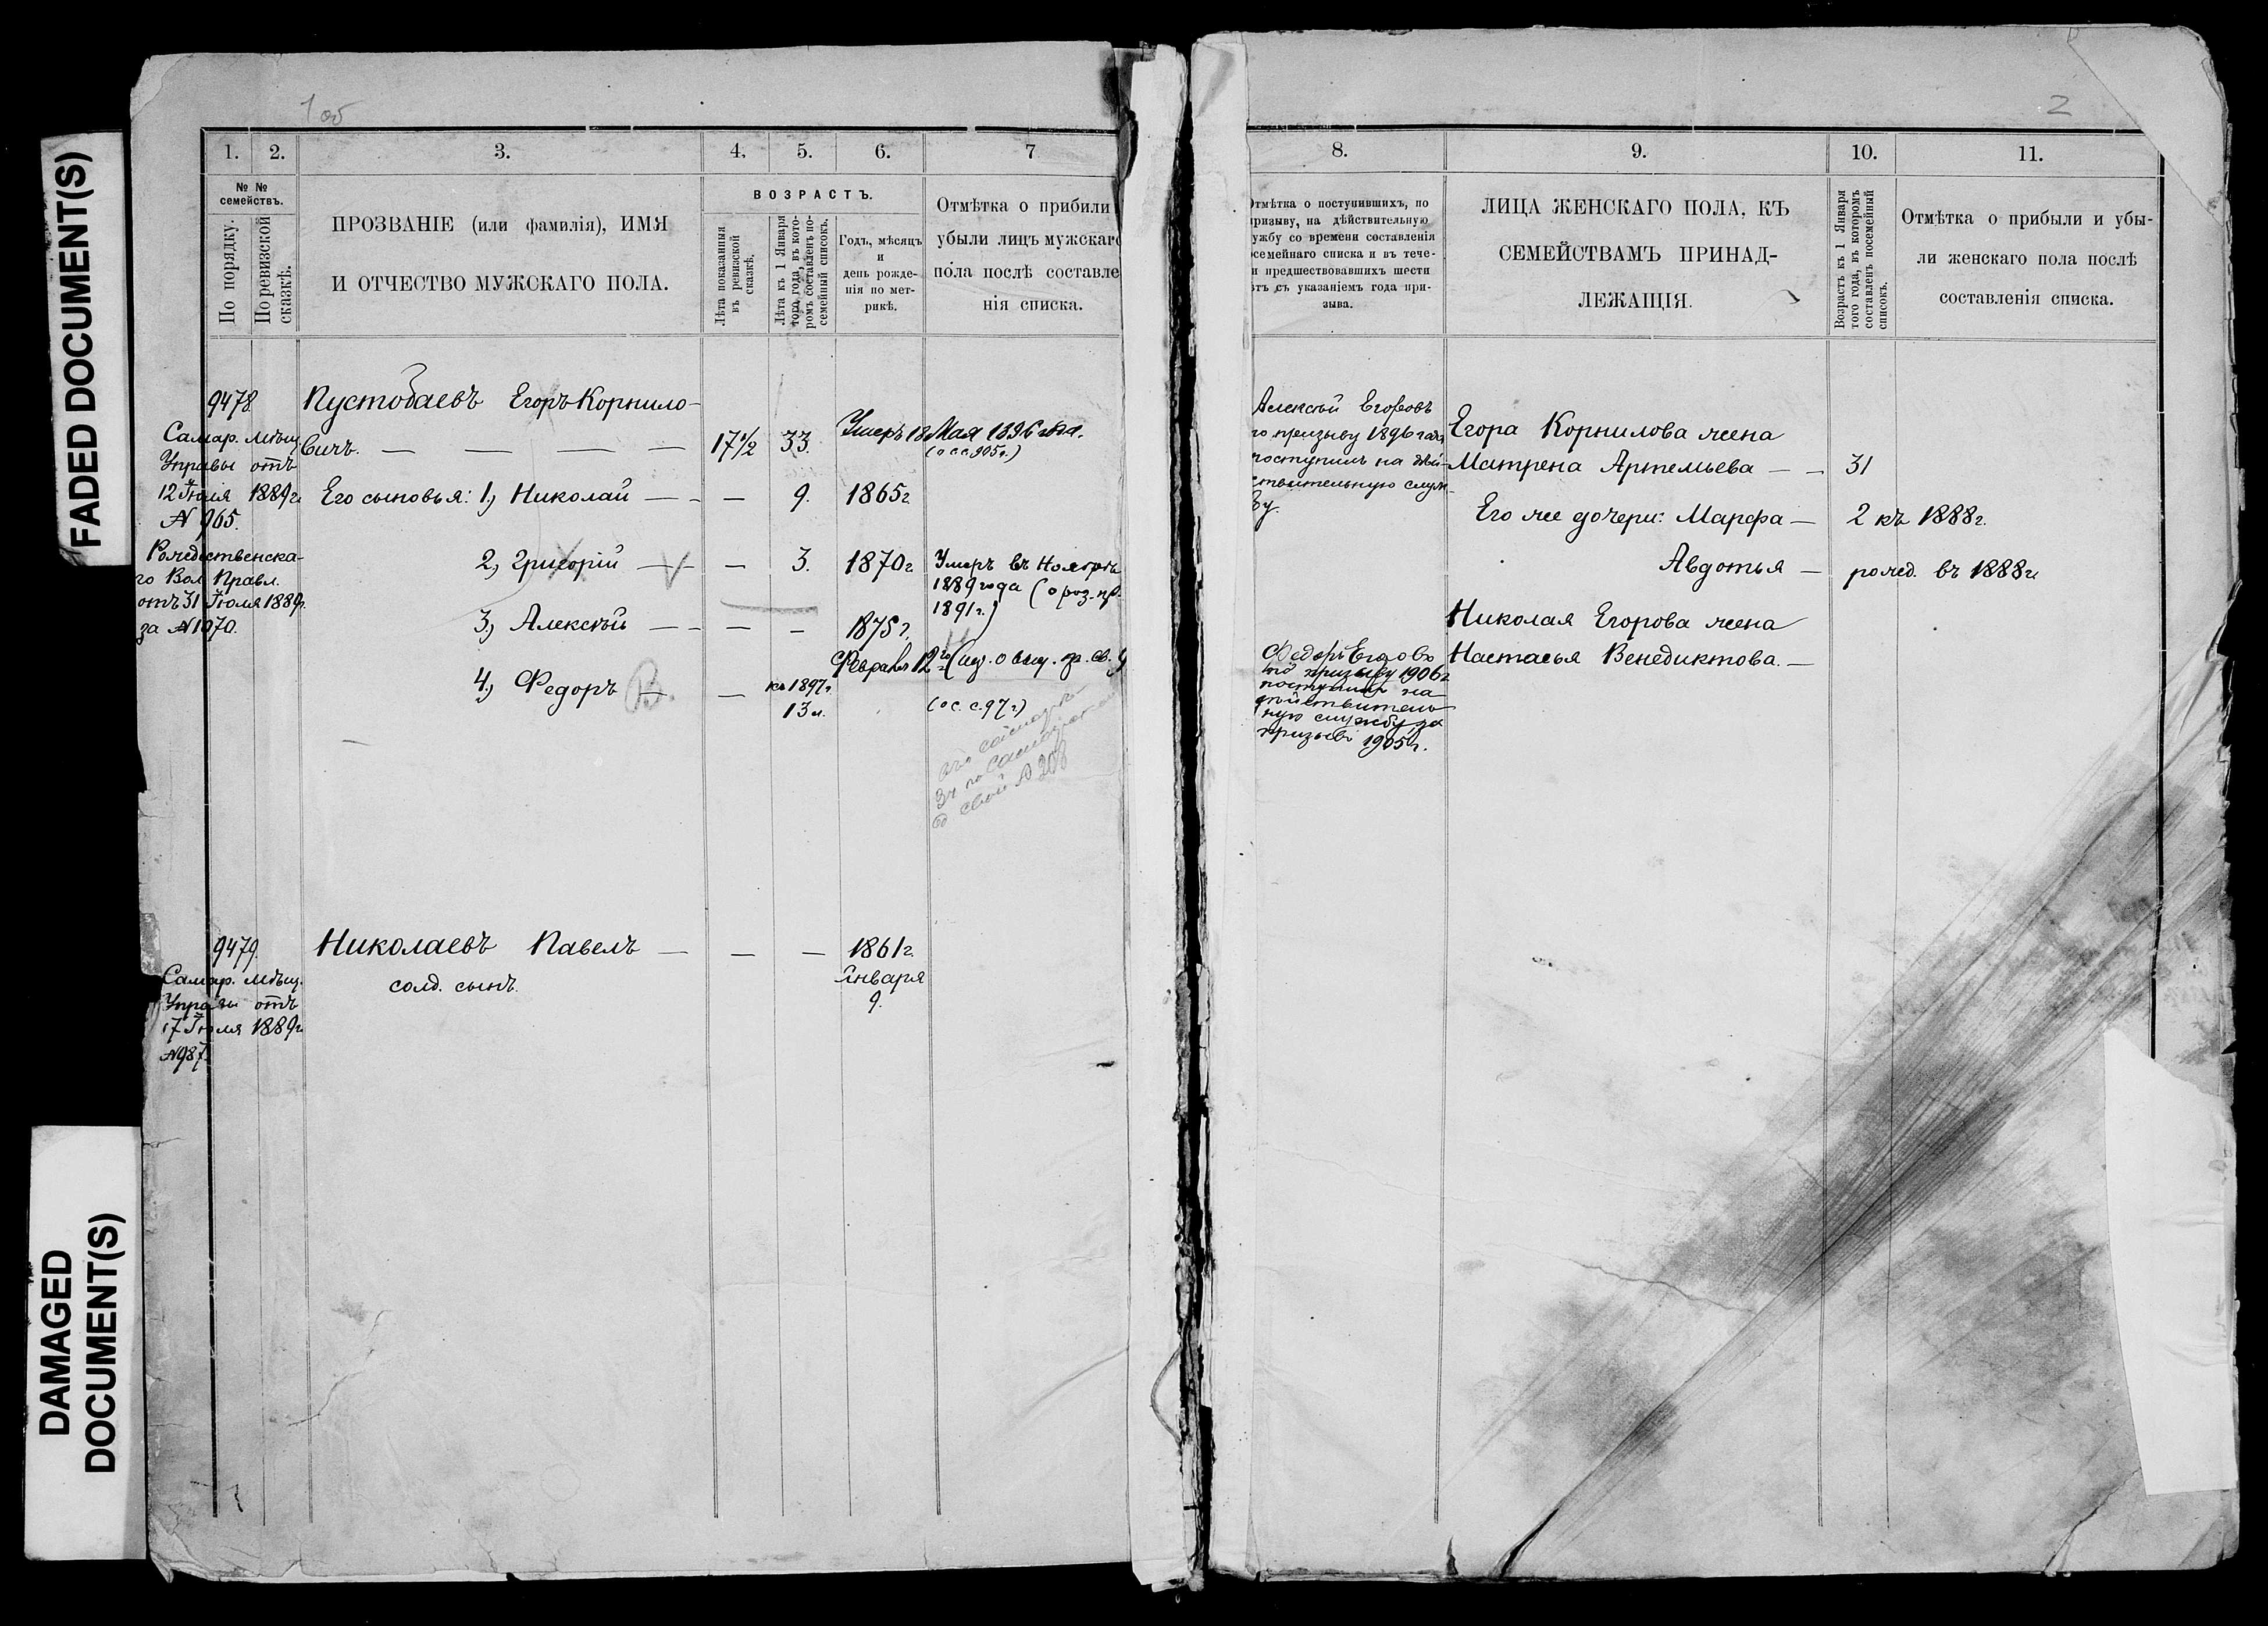 FADED DOCUMENT(S)
DAMAGED
DOCUMENT(S)
1об
1.
2.
3.
4.
5.
6.
7
№ №
семействъ.
По порядку.
По ревизской
сказкѣ.
ПРОЗВАНІЕ (или фамилія), ИМЯ
И ОТЧЕСТВО МУЖСКАГО ПОЛА.
ВОЗРАСТЪ.
Лѣта показанныя
въ ревизской
сказкѣ.
Лѣта къ 1 Января
того года, въ кото-
ромъ составленъ по-
семейный списокъ.
Годъ, мѣсяцъ
и
день рожде-
нія по мет-
рикѣ.
Отмѣтка о прибыли
убыли лицъ мужскаго
пола послѣ составле
нія списка.
9478
Самар. Мѣщ.
Управы отъ
12 Іюля 1889г.
№ 965.
Рождественска-
го Вол. Правл.
отъ 31 Іюля 1889г.
за №1070.
Пустобаевъ Егоръ Корнило-
вичъ. — — — — 17½ 33. Умеръ 18 Мая 1896 года.
(о с.с. 905г.)
Его сыновья: 1, Николай — — 9. 1865г
2, Григорій — — 3. 1870г Умеръ въ Ноябрѣ
1889 года (о роз. пр.
1891г.)
3, Алексѣй — — — 1875г.
Февраля 12
4, Федоръ В. — къ 1897г.
13 л.
(о с. с. 97г.)
9479.
Самар. Мѣщ.
Управы отъ
17 Іюля 1889г.
№987.
Николаевъ Павелъ — — — 1861г.
солд. сынъ.
Января
9.
2
8.
9.
10.
11.
Отмѣтка о поступившихъ, по
призыву, на дѣйствительную
ужбу со времени составленія
осемейнаго списка и въ тече-
и предшествовавшихъ шести
ѣтъ съ указаніемъ года при-
зыва.
ЛИЦА ЖЕНСКАГО ПОЛА, КЪ
СЕМЕЙСТВАМЪ ПРИНАД-
ЛЕЖАЩІЯ.
Возрастъ къ 1 Января
того года, въ которомъ
составленъ посемейный
списокъ.
Отмѣтка о прибыли и убы-
ли женскаго пола послѣ
составленія списка.
Алексѣй Егоровъ
по призыву 1896 года
поступилъ на дѣй-
ствительную служ-
бу.
Федоръ Егоровъ
по призыву 1906г
поступилъ на
дѣйствитель
ную службу за
призывъ 1905г.
Егора Корнилова жена
Матрена Артемьева — — 31
Его же дочери: Марфа — 2 къ 1888г.
Авдотья — рожд. въ 1888г.
Николая Егорова жена
Настасья Венедиктова. —